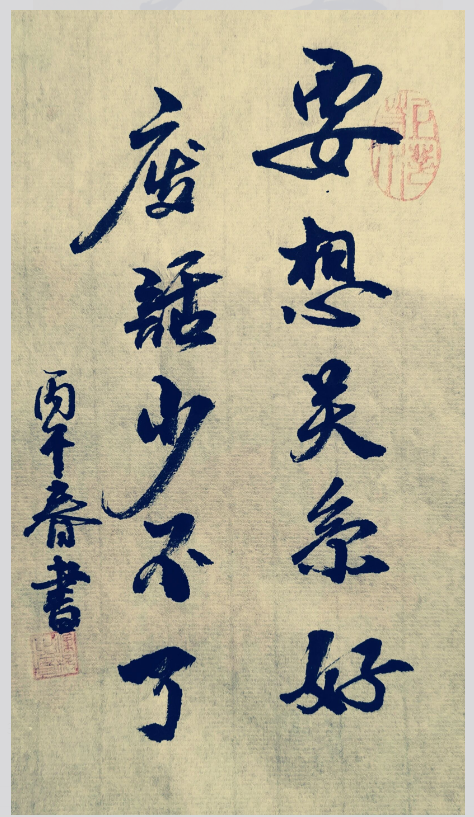 要想关系好
废話少不了
丙午春書